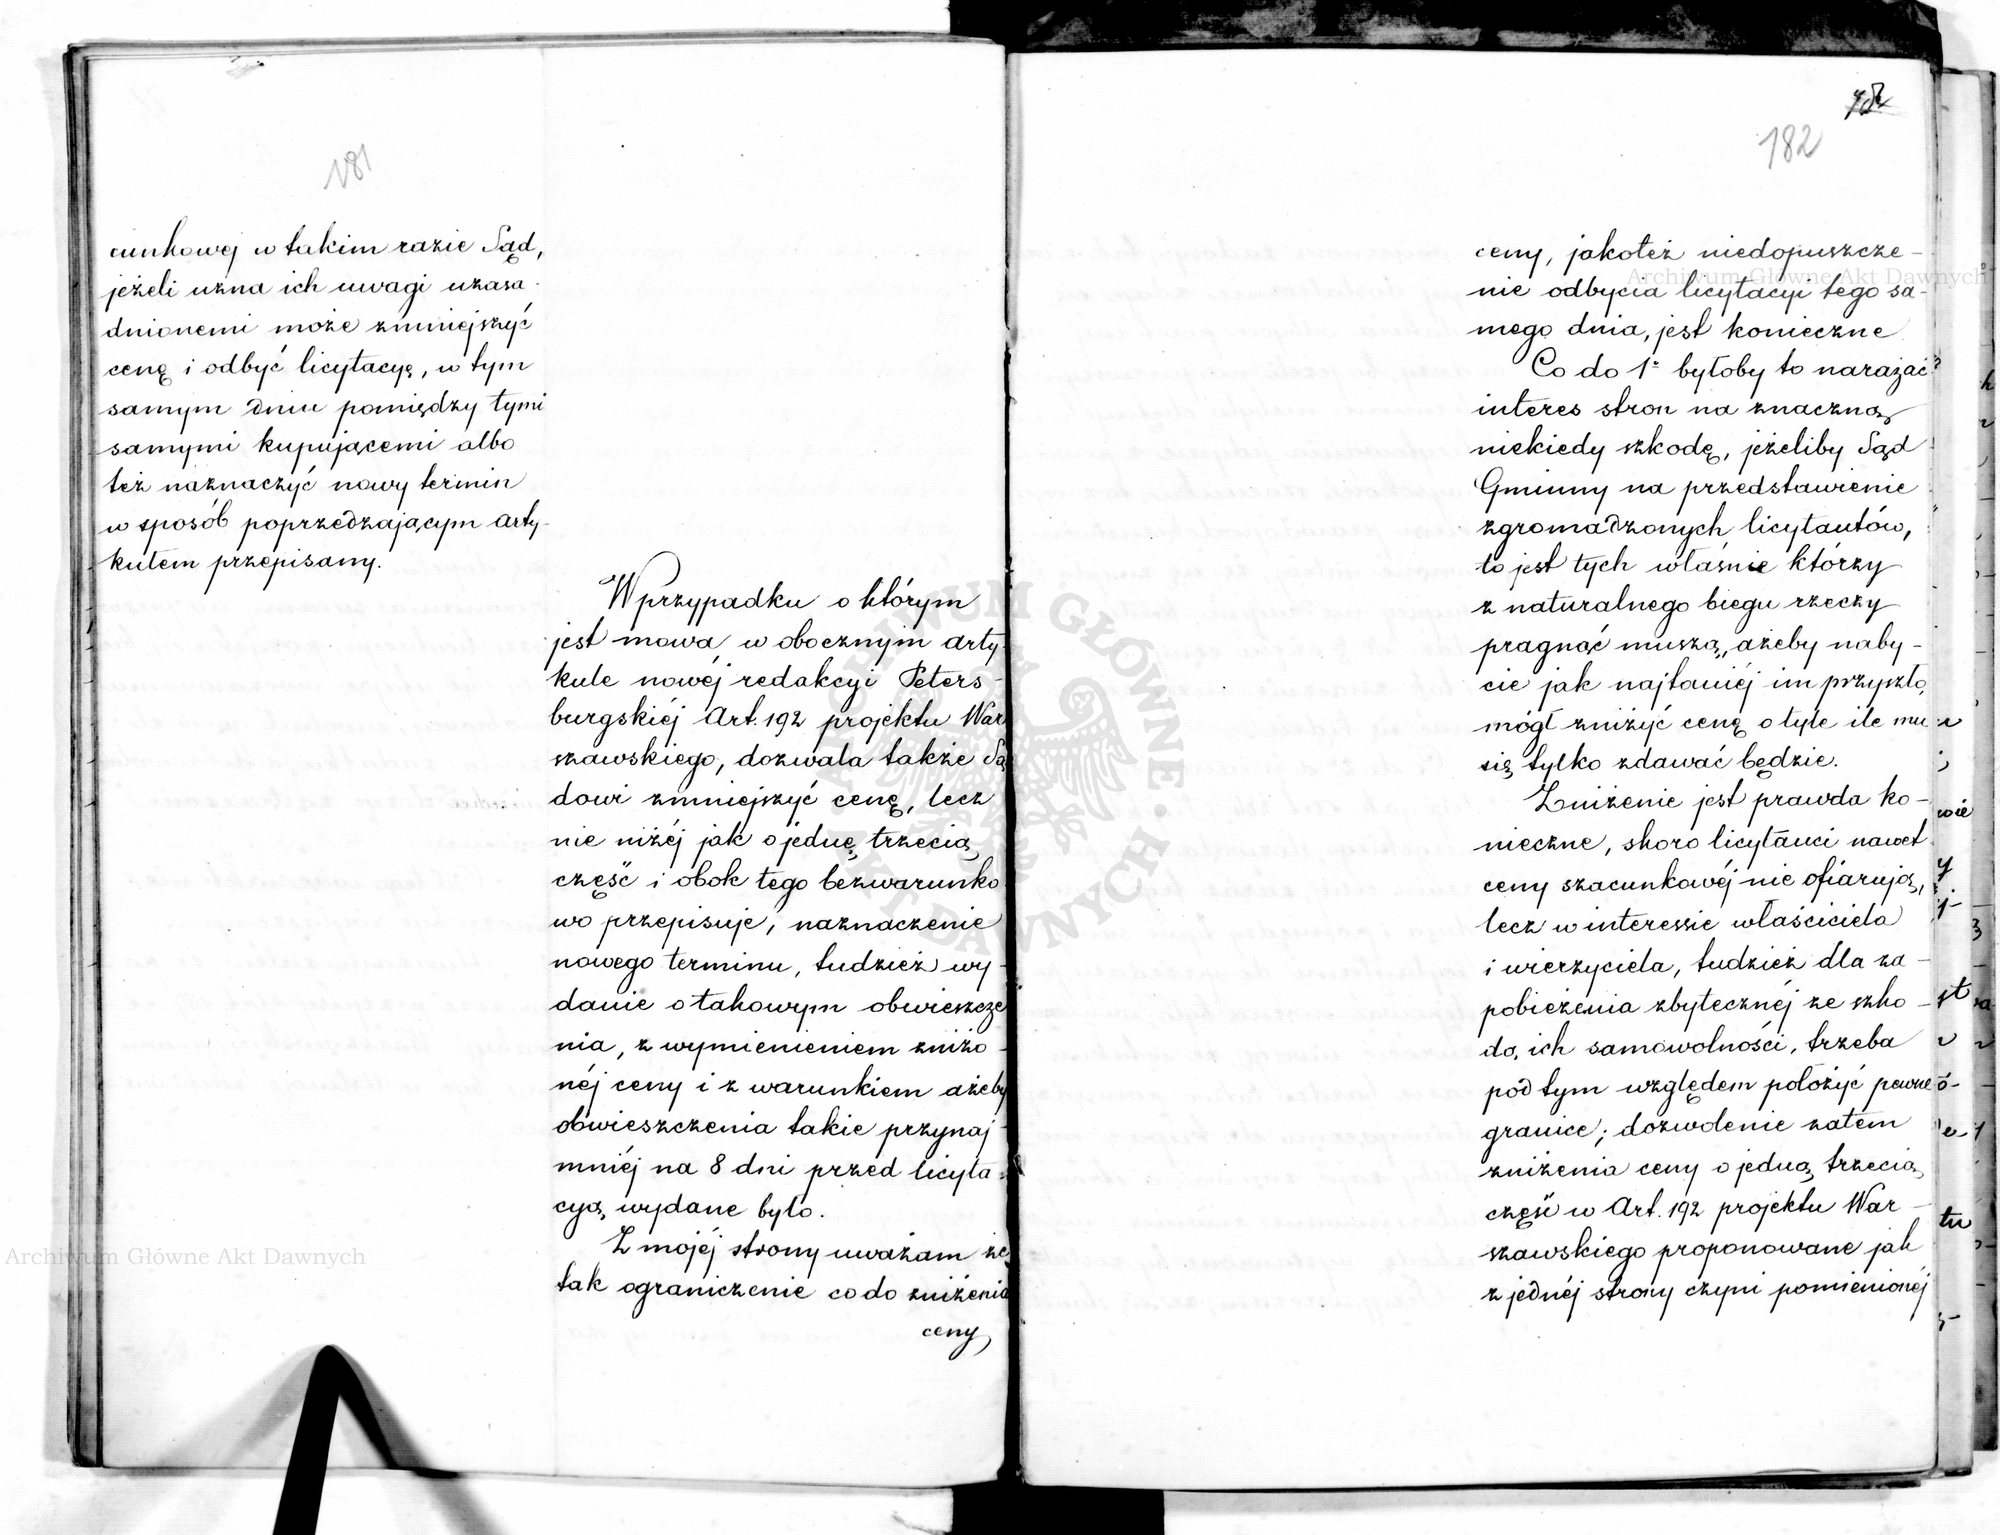 181
cunkowej w takim razie Sąd,
jeżeli uzna ich uwagi uzasa-
dnionemi może zmniejszyć
cenę i odbyć licytacyę, w tym
samym dniu pomiędzy tymi
samymi kupującemi albo
też naznaczyć nowy termin
w sposób poprzedzającym arty-
kułem przepisany.
W przypadku o którym
jest mowa w obocznym arty-
kule nowéj redakcyi Peters-
burgskiéj Art. 192 projektu War
szawskiego, dozwala także Są
dowi zmniejszyć cenę, lecz
nie niżéj jak o jednę trzecią
część i obok tego bezwarunko
wo przepisuje, naznaczenie
nowego terminu, tudzież wy-
danie o takowym obwieszcze
nia, z wymienieniem zniżo-
néj ceny i z warunkiem ażeby
obwieszczenia takie przynaj-
mniéj na 8 dni przed licyta-
cyą wydane było.
Z mojéj strony uważam że
tak ograniczenie co do zniżenia
ceny
182
ceny, jakoteż niedopuszcze-
nie odbycia licytacyi tego sa-
mego dnia, jest konieczne
Co do 1º byłoby to narażać
interes stron na znaczną
niekiedy szkodę, jeżeliby Sąd
Gminny na przedstawienie
zgromadzonych licytantów,
to jest tych właśnie którzy
z naturalnego biegu rzeczy
pragnąć muszą, ażeby naby-
cie jak najtaniéj im przyszło,
mógł zniżyć cenę o tyle ile mu
się tylko zdawać będzie.
Zniżenie jest prawda ko-
nieczne, skoro licytanci nawet
ceny szacunkowéj nie ofiarują,
lecz w interessie właściciela
i wierzyciela, tudzież dla za-
pobieżenia zbytecznéj ze szko-
dą ich samowolności, trzeba
pod tym względem położyć pewne
granice; dozwolenie zatem
zniżenia ceny o jedną trzecią
część w Art. 192 projektu War-
szawskiego proponowane jak
z jednéj strony czyni pomienionéj
Archiwum Główne Akt Dawnych
Archiwum Główne Akt Dawnych
ARCHIWUM GŁÓWNE AKT DAWNYCH